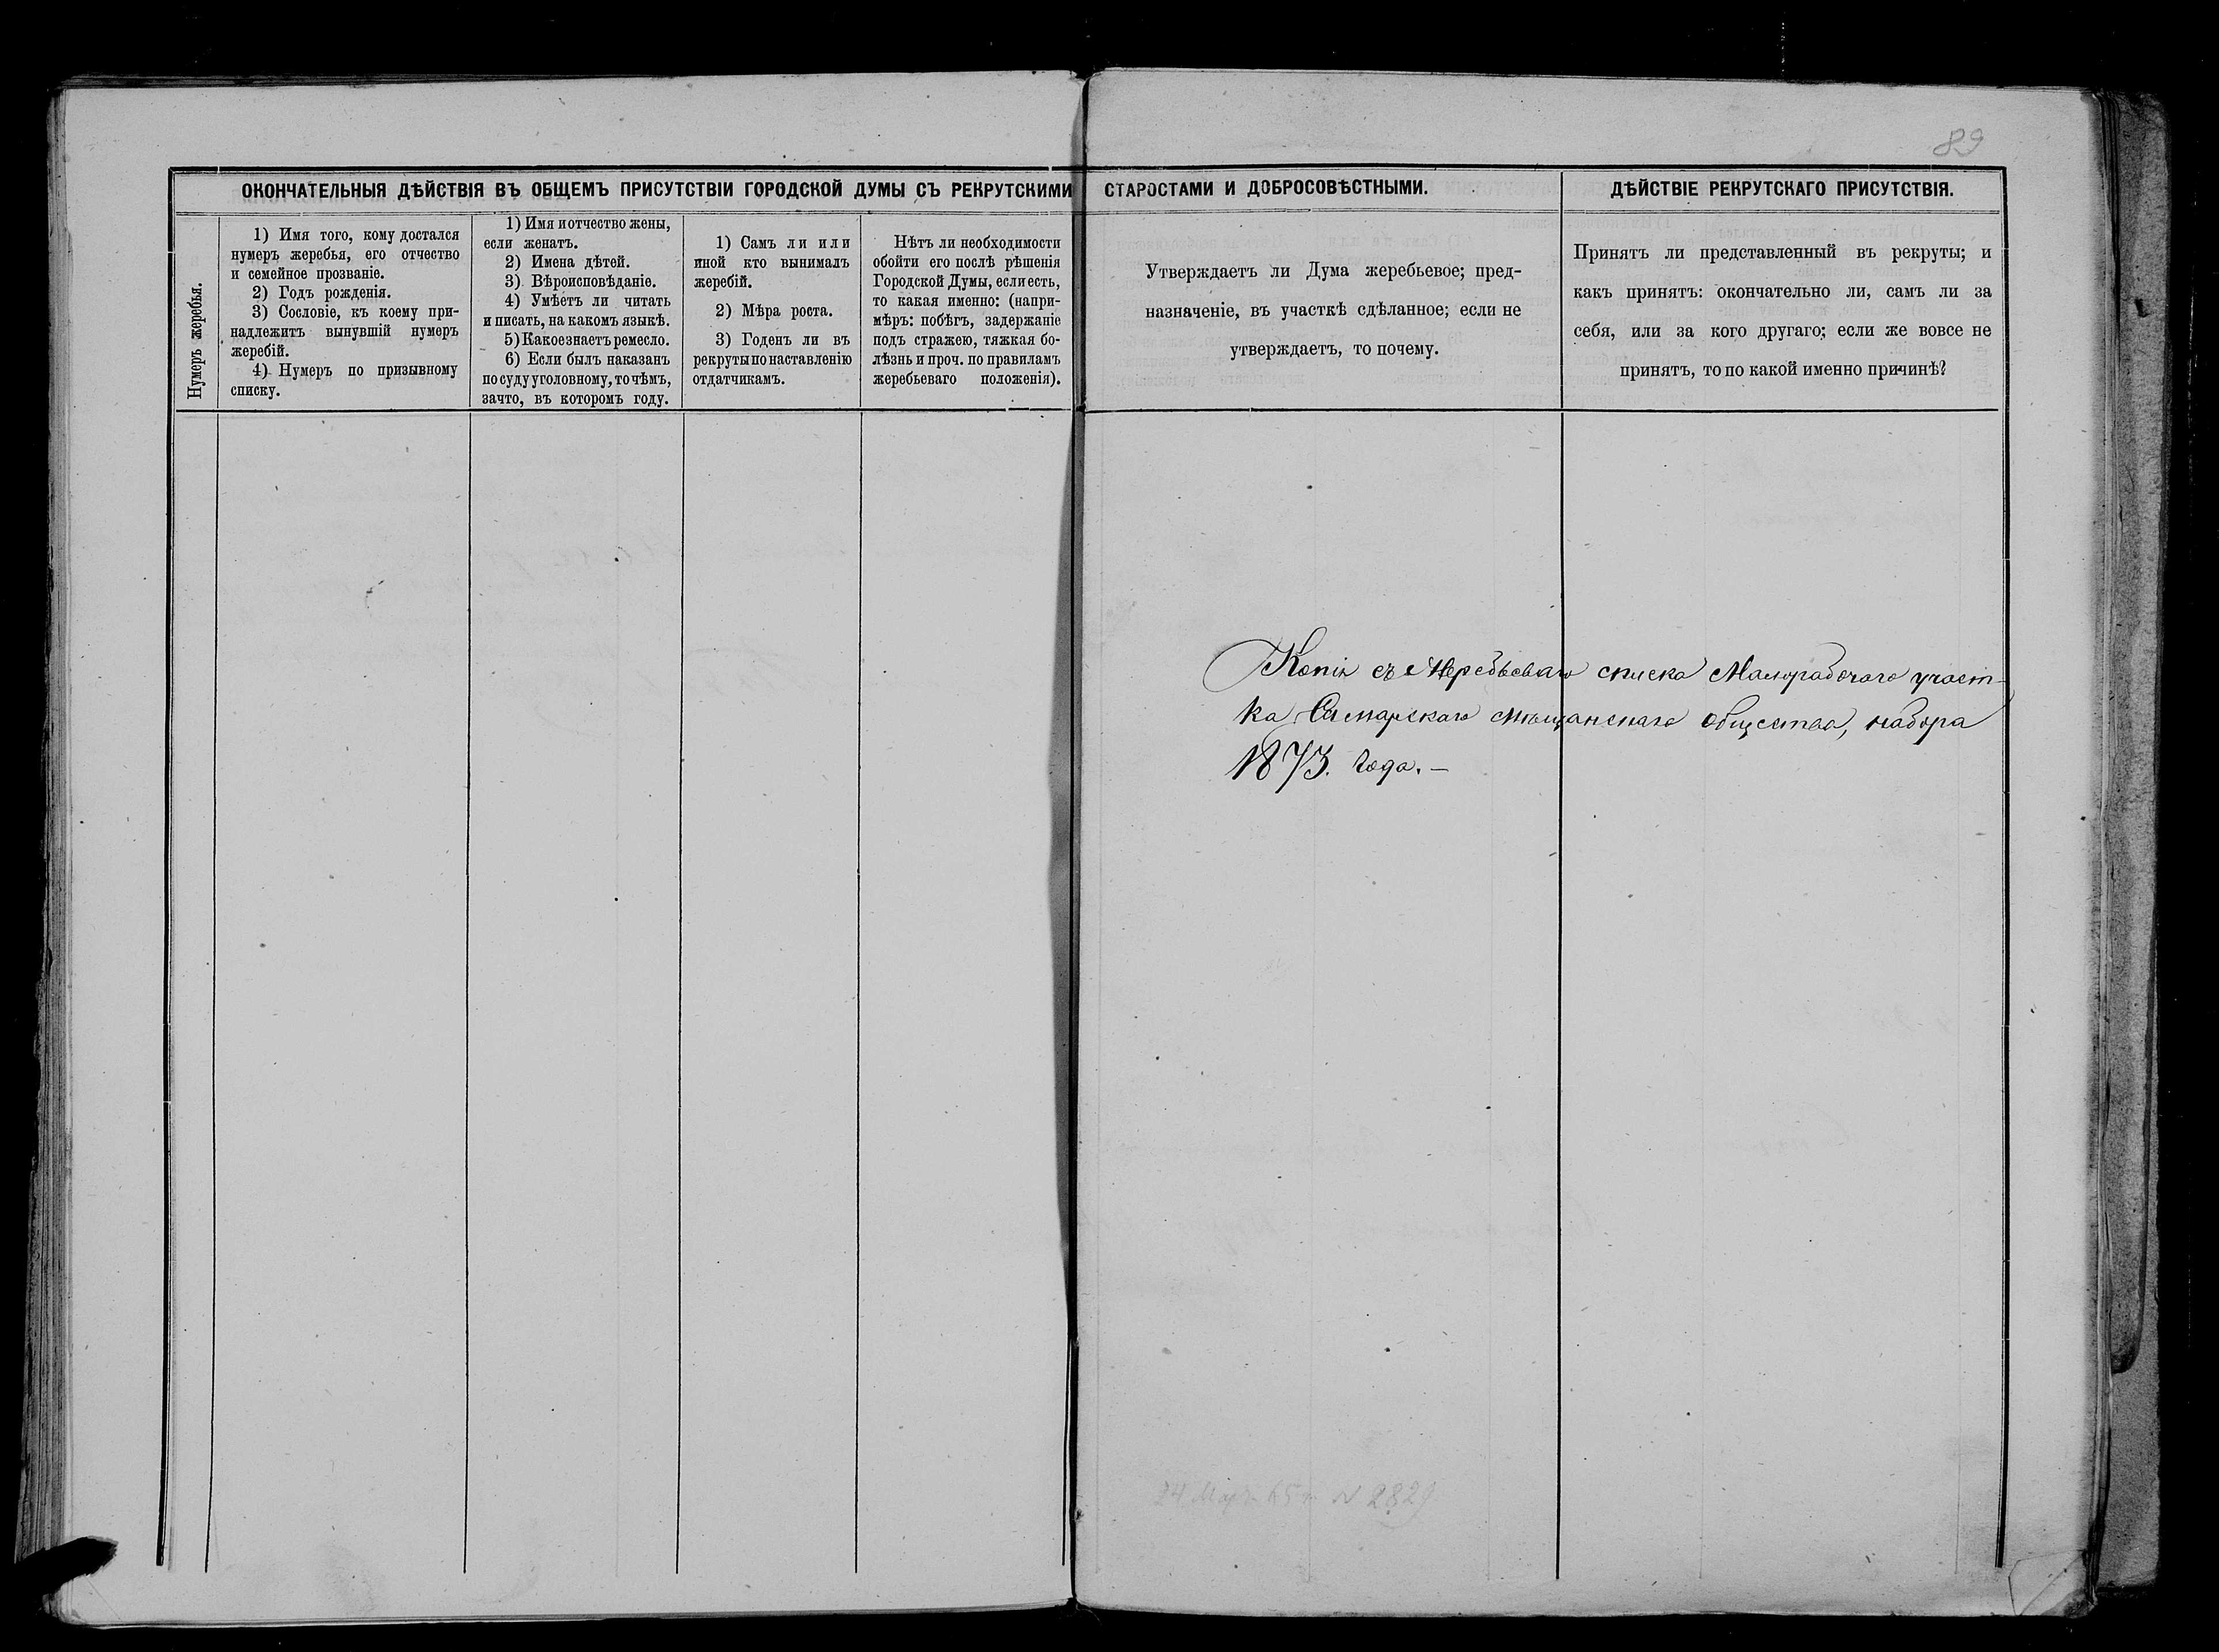 89
ОКОНЧАТЕЛЬНЫЯ ДѢЙСТВІЯ ВЪ ОБЩЕМЪ ПРИСУТСТВІИ ГОРОДСКОЙ ДУМЫ СЪ РЕКРУТСКИМИ СТАРОСТАМИ И ДОБРОСОВѢСТНЫМИ.
ДѢЙСТВІЕ РЕКРУТСКАГО ПРИСУТСТВІЯ.
Нумеръ жеребья.
1) Имя того, кому достался
нумеръ жеребья, его отчество
и семейное прозваніе.
2) Годъ рожденія.
3) Сословіе, къ коему при-
надлежитъ вынувшій нумеръ
жеребій.
4) Нумеръ по призывному
списку.
1) Имя и отчество жены,
если женатъ.
2) Имена дѣтей.
3) Вѣроисповѣданіе.
4) Умѣетъ ли читать
и писать, на какомъ языкѣ.
5) Какое знаетъ ремесло.
6) Если былъ наказанъ
по суду уголовному, то чѣмъ,
за что, въ которомъ году.
1) Самъ ли или
иной кто вынималъ
жеребій.
2) Мѣра роста.
3) Годенъ ли въ
рекруты по наставленію
отдатчикамъ.
Нѣтъ ли необходимости
обойти его послѣ рѣшенія
Городской Думы, если есть,
то какая именно: (напри-
мѣръ: побѣгъ, задержаніе
подъ стражею, тяжкая бо-
лѣзнь и проч. по правиламъ
жеребьеваго положенія).
Утверждаетъ ли Дума жеребьевое; пред-
назначеніе, въ участкѣ сдѣланное; если не
утверждаетъ, то почему.
Принятъ ли представленный въ рекруты; и
какъ принятъ: окончательно ли, самъ ли за
себя, или за кого другаго; если же вовсе не
принятъ, то по какой именно причинѣ?
Копія съ Жеребьеваго списка Малорабочаго участ-
ка Самарскаго мѣщанскаго общества, набора
1873. года. —
24 № 2829